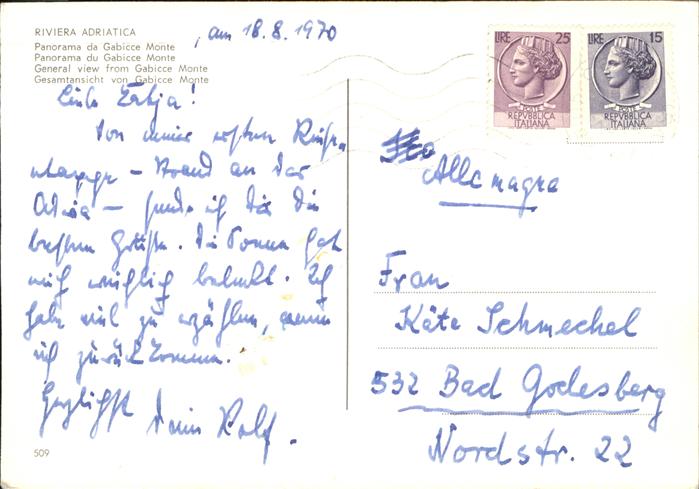 RIVIERA ADRIATICA
Panorama da Gabicce Monte
Panorama du Gabicce Monte
General view from Gabicce Monte
Gesamtansicht von Gabicce Monte
, am 18.8.1970
Liebe
Von meiner ersten Reise
– Strand an der
Adria – sende ich Dir die
besten Grüße. Die Sonne hat
mich belebt. Ich
habe viel zu erzählen, wenn
ich zurückkomme.
Herzlichst Dein Rolf.
509
LIRE 25
POSTE
REPVBBLICA
ITALIANA
LIRE 15
POSTE
REPVBBLICA
ITALIANA
Allemagne
Frau
Käte Schmechel
532 Bad Godesberg
Nordstr. 22